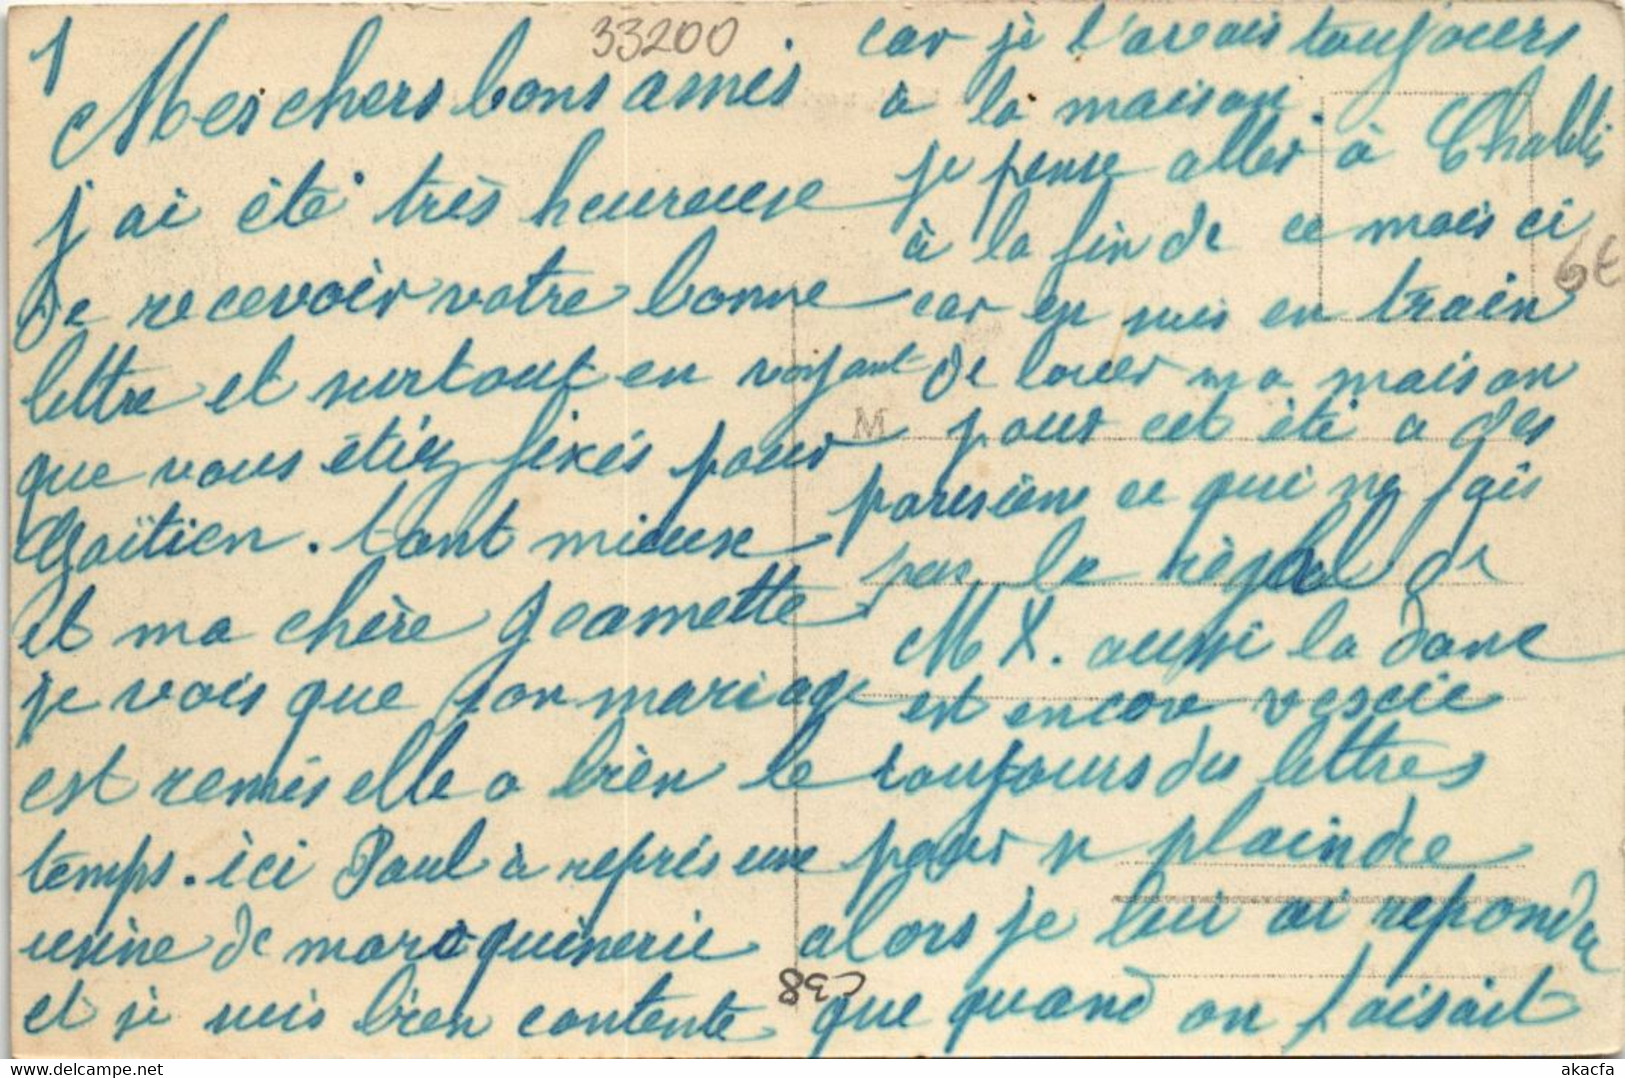 1
33200
Mes chers bons amis
j'ai été très heureuse
de recevoir votre bonne
lettre et surtout en voyant
que vous étiez fixés pour
Gaïtien. tant mieux
et ma chère Jeannette
je vois que son mariage
est remis elle a bien le
temps. ici Paul à repris une
usine de maroquinerie
et je suis bien contente
car je l'avais toujours
à la maison.
je pense aller à Chablis
à la fin de ce mois ci
6€
car en suis en train
de louer ma maison
M pour cet été a des
parisiens ce qui ne fais
pas le régal de
M X. aussi la dame
est encore vexcie
toujours des lettres
pour se plaindre
alors je lui ai repondu
que quand on faisait
delcampe.net
akacfa